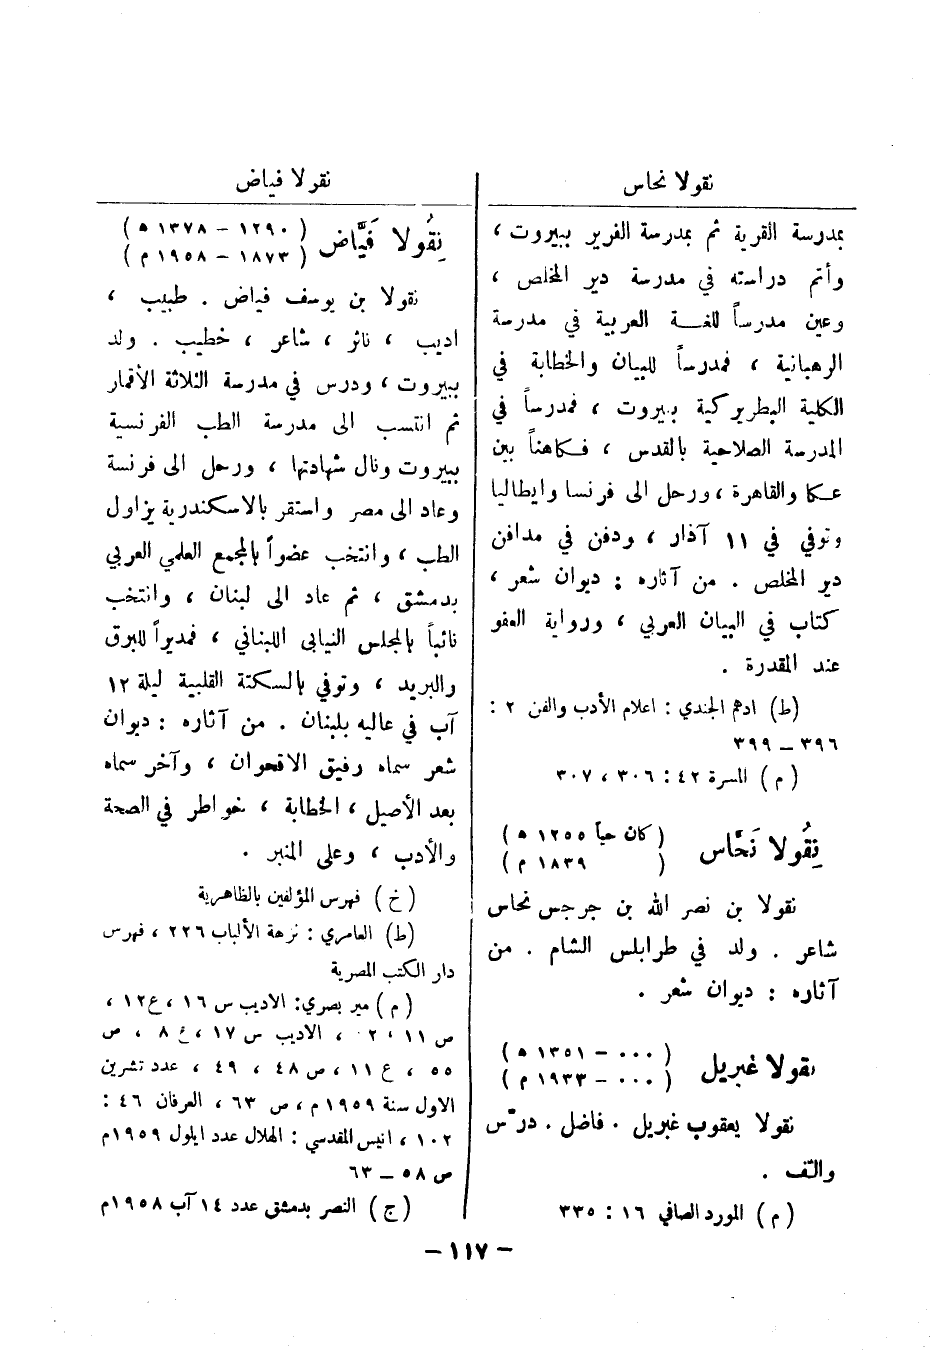 نقولا نحاس
بمدرسة القرية ثم بمدرسة الفرير ببيروت ،
وأتم دراسته في مدرسة دير المخلص ،
وعين مدرساً للغة العربية في مدرسة
الرهبانية ، فمدرساً للبيان والخطابة في
الكلية البطريركية ببيروت ، فمدرساً في
المدرسة الصلاحية بالقدس ، فكاهناً بين
عكا والقاهرة ، ورحل الى فرنسا وايطاليا
وتوفي في ١١ آذار ، ودفن في مدافن
دير المخلص . من آثاره : ديوان شعر ،
كتاب في البيان العربي ، ورواية العفو
عند المقدرة .
(ط) ادهم الجندي : اعلام الأدب والفن ٢ :
٣٩٦ – ٣٩٩
( م ) المسرة ٤٢ : ٣٠٦ ، ٣٠٧
نِقُولا نَحَّاس ( كان حياً ١٢٥٥ ه )
( ١٨٣٩ م )
نقولا بن نصر الله بن جرجس نحاس
شاعر . ولد في طرابلس الشام . من
آثاره : ديوان شعر .
نقولا غبريل ( ٠٠٠ – ١٣٥١ ه )
( ٠٠٠ – ١٩٣٣ م )
نقولا يعقوب غبريل . فاضل . درّس
والّف .
( م ) المورد الصافي ١٦ : ٣٣٥
نقولا فياض
نِقُولا فَيَّاض ( ١٢٩٠ – ١٣٧٨ ه )
( ١٨٧٣ – ١٩٥٨ م )
نقولا بن يوسف فياض . طبيب ،
اديب ، ناثر ، شاعر ، خطيب . ولد
ببيروت ، ودرس في مدرسة الثلاثة الأقمار
ثم انتسب الى مدرسة الطب الفرنسية
ببيروت ونال شهادتها ، ورحل الى فرنسة
وعاد الى مصر واستقر بالاسكندرية يزاول
الطب ، وانتخب عضواً بالمجمع العلمي العربي
بدمشق ، ثم عاد الى لبنان ، وانتخب
نائباً بالمجلس النيابي اللبناني ، فمديراً للبرق
والبريد ، وتوفي بالسكتة القلبية ليلة ١٢
آب في عاليه بلبنان . من آثاره : ديوان
شعر سماه رفيق الاقحوان ، وآخر سماه
بعد الأصيل ، الخطابة ، خواطر في الصحة
والأدب ، وعلى المنبر .
( خ ) فهرس المؤلفين بالظاهرية
(ط) العامري : نزهة الألباب ٢٢٦ ، فهرس
دار الكتب المصرية
( م ) مير بصري : الاديب س ١٦ ، ع ١٢ ،
ص ١١ ، ٢٠ ، الاديب س ١٧ ، ع ٨ ، ص
٥٥ ، ع ١١ ، ص ٤٨ ، ٤٩ ، عدد تشرين
الاول سنة ١٩٥٩ م ، ص ٦٣ ، العرفان ٤٦ :
١٠٢ ، انيس المقدسي : الهلال عدد ايلول ١٩٥٩م
ص ٥٨ – ٦٣
( ج ) النصر بدمشق عدد ١٤ آب ١٩٥٨م
– ١١٧ –